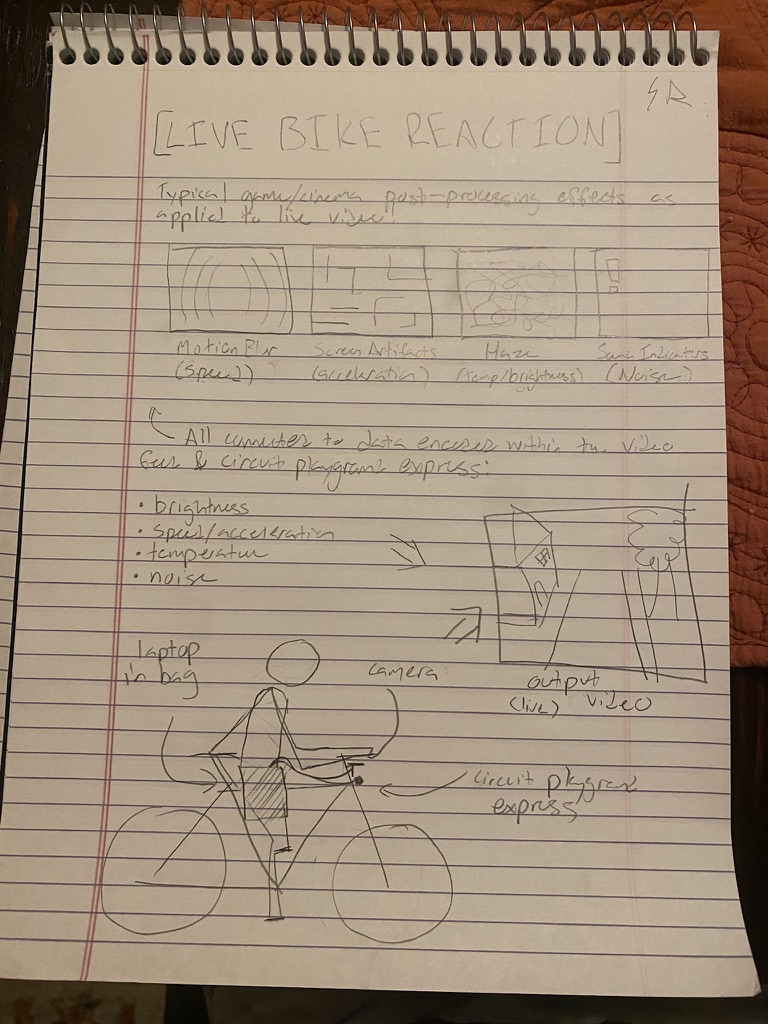 SR
[LIVE BIKE REACTION]
Typical game/cinema post-processing effects as
applied to live video!
Motion Blur
(Speed)
Screen Artifacts
(acceleration)
Haze
(temp/brightness)
Sound Indicators
(Noise)
All connected to data encoded within the video
feed & circuit playground express:
• brightness
• speed/acceleration
• temperature
• noise
laptop
in bag
camera
output
(live) video
circuit playground
express